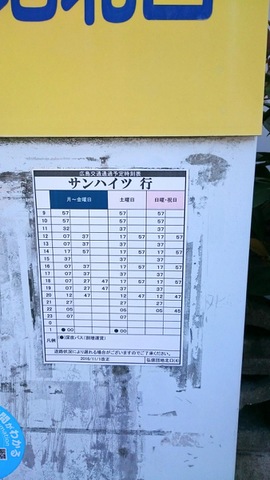 広島交通通過予定時刻表
サンハイツ 行
月～金曜日 土曜日 日曜・祝日
9 57 57 57
10 57 57 57
11 32 37 37
12 07 37 17 57 17 57
13 07 37 37 37
14 17 57 17 57 17 57
15 37 37 37
16 17 57 17 57 17 57
17 37 37 37
18 07 27 47 17 57 17 57
19 07 27 47 37 37
20 12 47 12 47 12 47
21 27 27 27
22 05 00 00 45
23 07 07
0
1 ●00 ●00
凡例 ●)深夜バス(割増運賃)
道路状況により遅れる場合がございますのでご了承ください。
2016/11/1改正